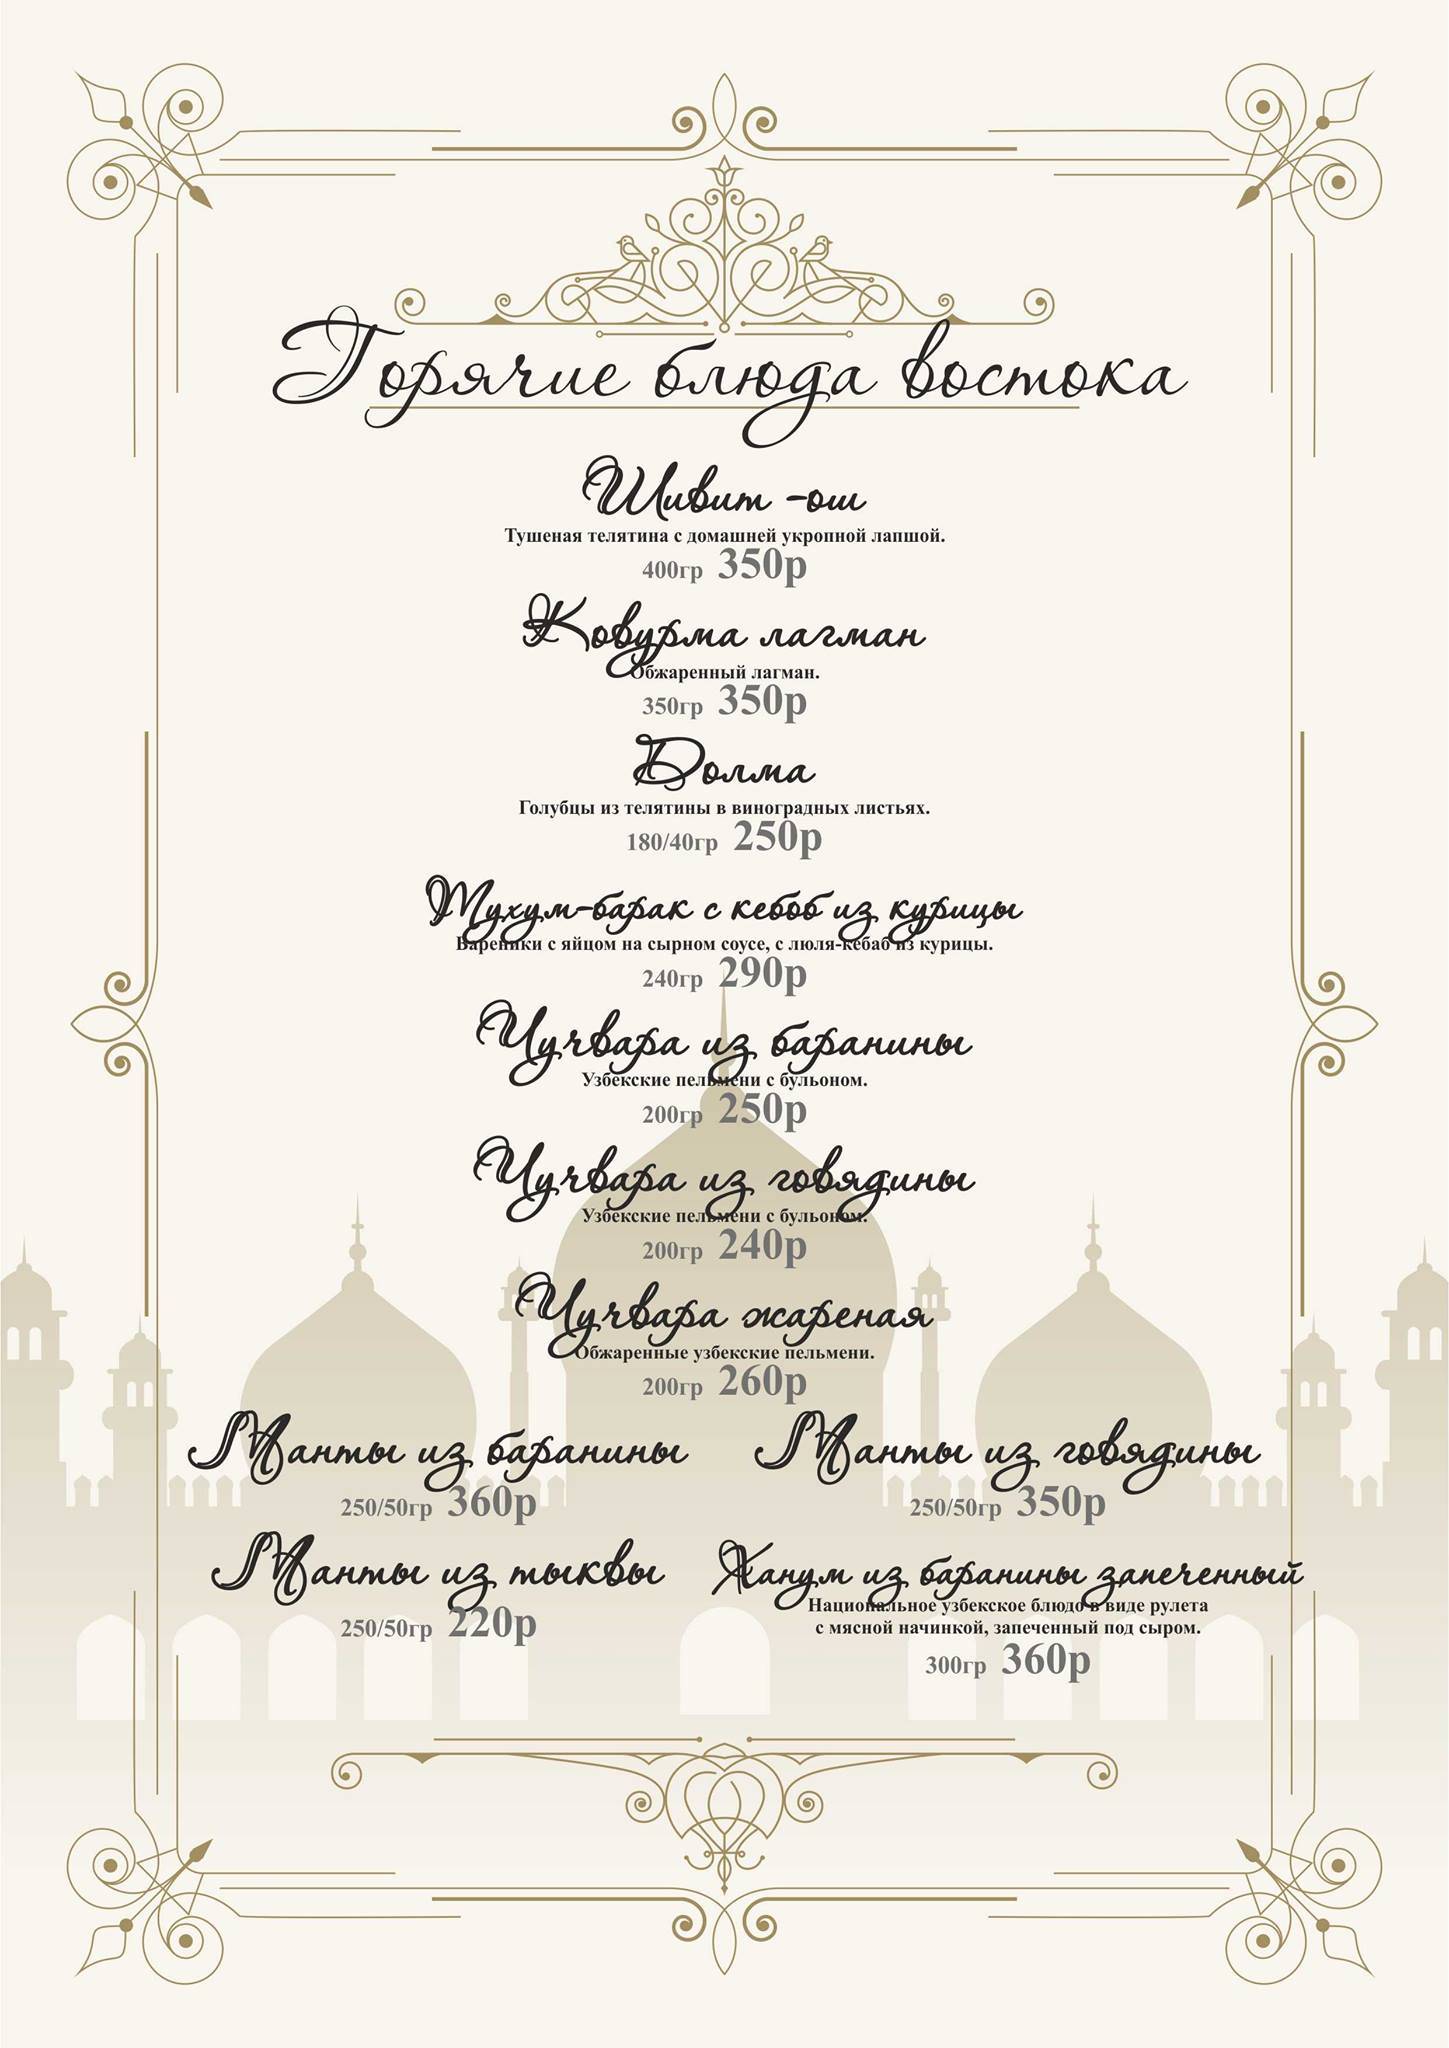 Горячие блюда востока
Шивит -ош
Тушеная телятина с домашней укропной лапшой.
400гр 350р
Ковурма лагман
Обжаренный лагман.
350гр 350р
Долма
Голубцы из телятины в виноградных листьях.
180/40гр 250р
Тухум-барак с кебоб из курицы
Вареники с яйцом на сырном соусе, с люля-кебаб из курицы.
240гр 290р
Чучвара из баранины
Узбекские пельмени с бульоном.
200гр 250р
Чучвара из говядины
Узбекские пельмени с бульоном.
200гр 240р
Чучвара жареная
Обжаренные узбекские пельмени.
200гр 260р
Манты из баранины
250/50гр 360р
Манты из говядины
250/50гр 350р
Манты из тыквы
250/50гр 220р
Ханум из баранины запеченный
Национальное узбекское блюдо в виде рулета
с мясной начинкой, запеченный под сыром.
300гр 360р